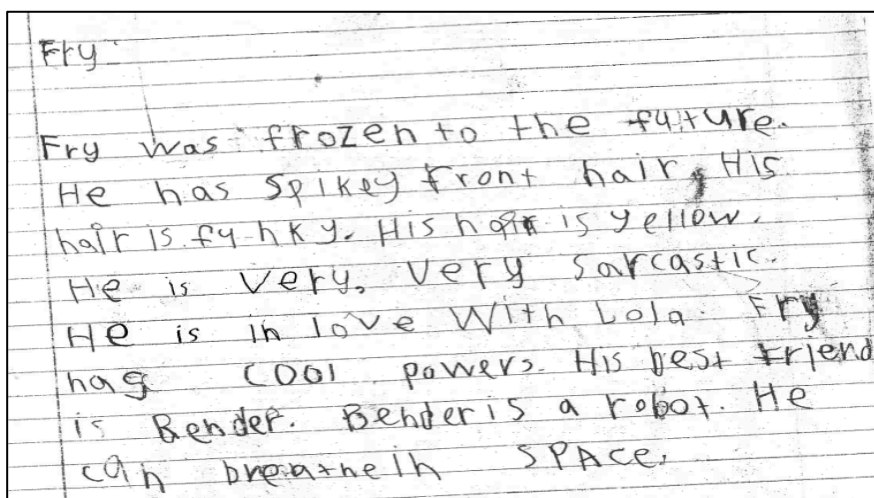 Fry
Fry was frozen to the future.
He has spikey front hair, His
hair is funky. His hair is yellow.
He is very, very sarcastic.
He is in love with Lola. Fry
has cool powers. His best friend
is Bender. Bender is a robot. He
can breathe in SPACE.